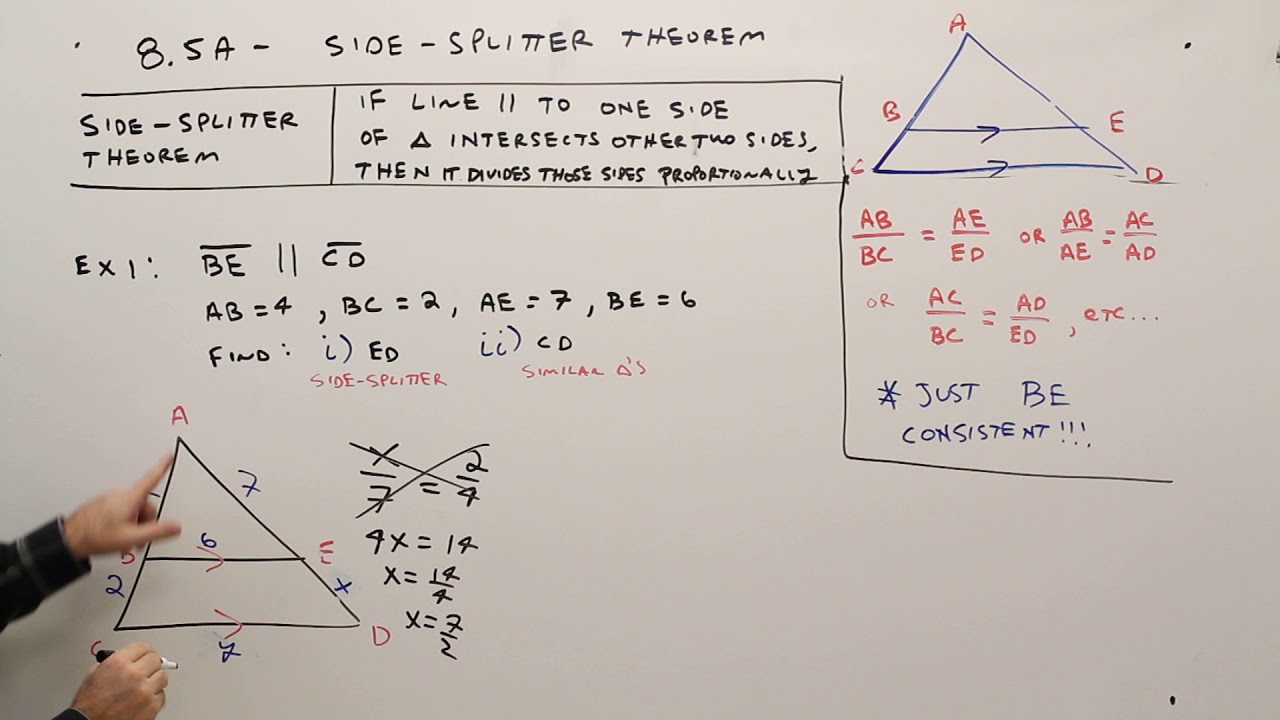 8.5A - SIDE-SPLITTER THEOREM
SIDE-SPLITTER
THEOREM
IF LINE || TO ONE SIDE
OF Δ INTERSECTS OTHER TWO SIDES,
THEN IT DIVIDES THOSE SIDES PROPORTIONALLY
A
B
E
C
D
AB/BC = AE/ED OR AB/AE = AC/AD
OR AC/BC = AD/ED, ETC...
* JUST BE
CONSISTENT!!!
EX 1: B̅E̅ || C̅D̅
AB = 4, BC = 2, AE = 7, BE = 6
FIND: i) ED ii) CD
SIDE-SPLITTER SIMILAR Δ'S
A
7
6
B
E
2
x
D
y
x/7 = 2/4
4x = 14
x = 14/4
x = 7/2